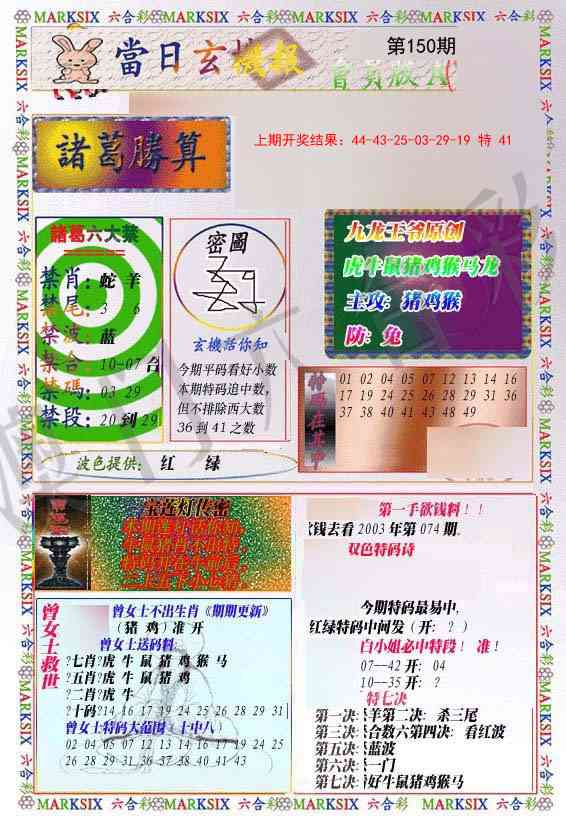 MARKSIX 六合彩 MARKSIX 六合彩 MARKSIX 六合彩 MARKSIX 六合彩
當日玄機報
第150期
會員版A
諸葛勝算
上期开奖结果：44-43-25-03-29-19 特 41
諸葛六大禁
禁肖：蛇 羊
禁尾：3 6
禁波：蓝
禁合：10-07合
禁碼：03 29
禁段：20到29
密圖
玄機活你知
今期平码看好小数
本期特码追中数，
但不排除西大数
36到41之数
九龙王爷原创
虎牛鼠猪鸡猴马龙
主攻：猪鸡猴
防：兔
特码在其中
01 02 04 05 07 12 13 14 16
17 19 24 25 26 28 29 31 36
37 38 40 41 43 48 49
波色提供： 红 绿
宝莲灯传密
第一手欲钱料！！
欲钱去看2003年第074期。
双色特码诗
今期特码最易中，
红绿特码中间发（开：？）
白小姐必中特段！ 准！
07--42 开：04
10--35 开：？
特七决
第一决：杀羊第二决：杀三尾
第三决：杀合数六第四决：看红波
第五决：杀蓝波
第六决：杀一门
第七决：看好牛鼠猪鸡猴马
曾女士救世
曾女士不出生肖《期期更新》
（猪 鸡）准 开
曾女士送码料:
?七肖?虎 牛 鼠 猪 鸡 猴 马
?五肖?虎 牛 鼠 猪 鸡
?二肖?虎 牛
?十码?14 16 17 19 24 25 26 28 29 31
曾女士特码大范围（十中八）
02 04 05 07 12 13 14 16 17 19 24 25
26 28 29 31 36 37 38 40 41 43
MARKSIX 六合彩 MARKSIX 六合彩 MARKSIX 六合彩 MARKSIX 六合彩